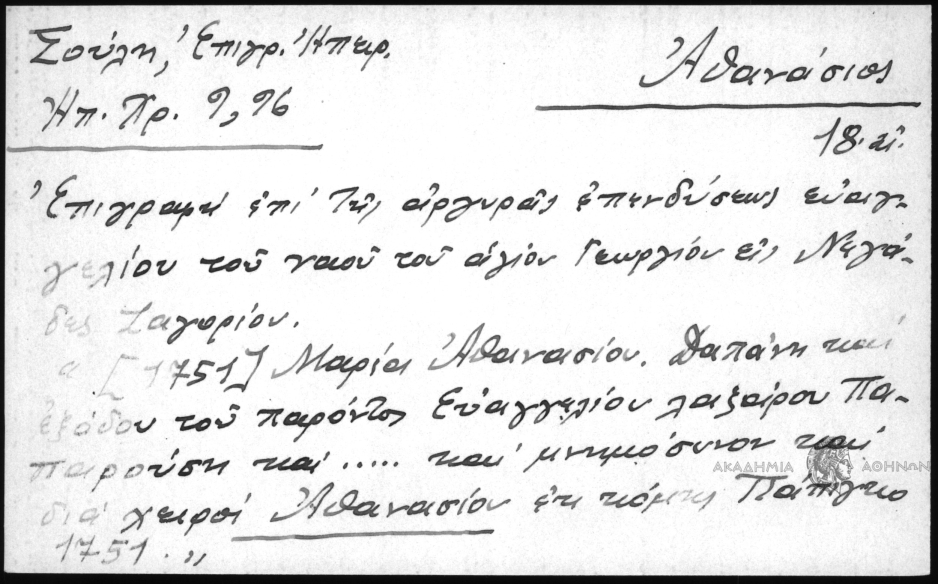 Σούλη, Ἐπιγρ. Ἠπειρ.
Ἠπ. Χρ. 9, 96
Ἀθανάσιος
18. αἰ.
Ἐπιγραφή ἐπί τῆς ἀργυρᾶς ἐπενδύσεως εὐαγ-
γελίου τοῦ ναοῦ τοῦ ἁγίου Γεωργίου εἰς Νεγά-
δες Ζαγορίου.
" [1751] Μαρία Ἀθανασίου. Δαπάνη καί
ἐξόδου τοῦ παρόντος Εὐαγγελίου λαζάρου Πα-
παρούση καί ..... καί μνημόσυνον καί
διά χειρός Ἀθανασίου ἐκ κόμης Πάπιγκο
1751. "
ΑΚΑΔΗΜΙΑ ΑΘΗΝΩΝ